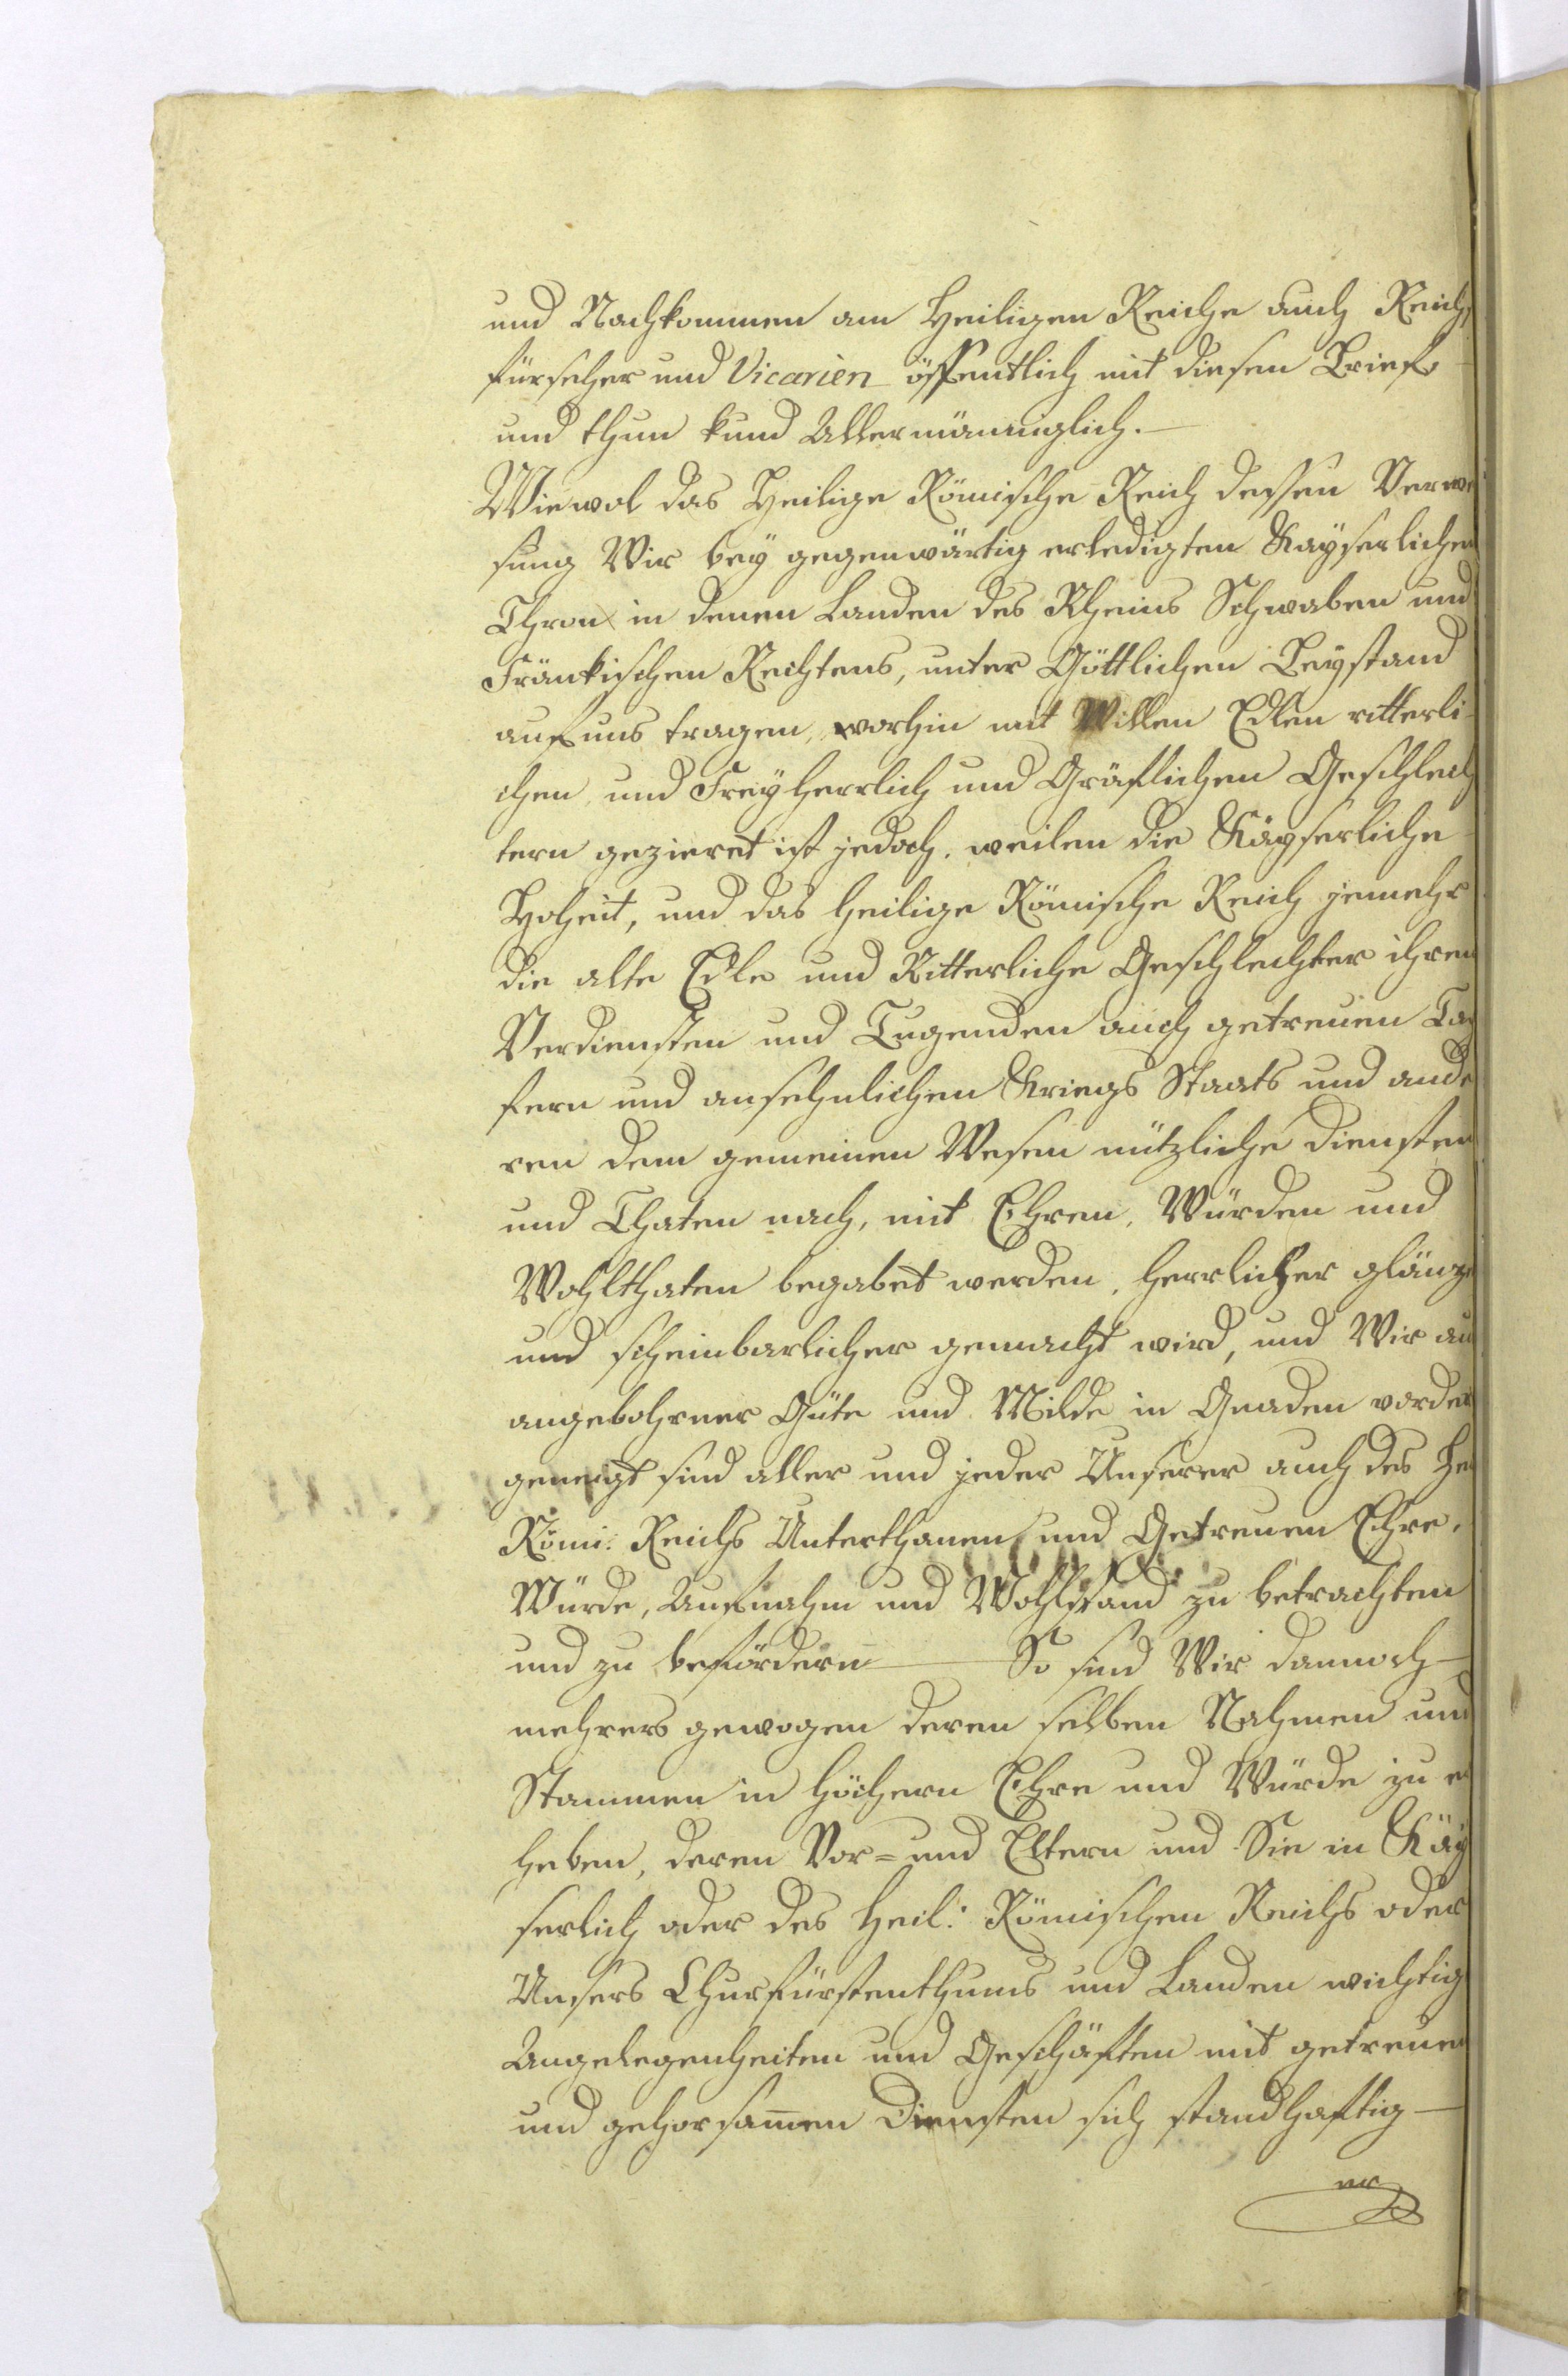 und Nachkommen am Heiligen Reiche auch Reichs
fürseher und Vicarien öffentlich mit diesen Brief
und thun kund Allermänniglich.
Wiewol das Heilige Römische Reich dessen Verwe
sung Wir bey gegenwärtig erledigten Kayserlichen
Thron in denen Landen des Rheins Schwaben und
Fränkischen Rechtens, unter Göttlichen Beystand
auf uns tragen, vorhin mit Villen Edlen ritterli
chen, und Freyherrlich und Gräflichen Geschlech
tern gezieret ist jedoch, weilen die Kayserliche
Hoheit, und das heilige Römische Reich jemehr
die alte Edle und Ritterliche Geschlechter ihren
Verdiensten und Tugenden auch getreuen Tap
fern und ansehnlichen Kriegs Staats und ande
ren dem gemeinen Wesen nützliche Diensten
und Thaten nach, mit Ehren, Würden und
Wohlthaten begabet werden, herrlicher glänze
und scheinbarlicher gemacht wird, und Wir au
angebohrner Güte und Milde in Gnaden vorder
geneigt sind aller und jeder Unserer auch des He
Römi: Reichs Unterthanen und Getreuen Ehre,
Würde, Aufnahm und Wohlstand zu betrachten
und zu befördern So sind Wir dannoch
mehrers gewogen deren selben Nahmen und
Stammen in höchern Ehre und Würde zu er
heben, deren Vor= und Eltern und Sie in Kay
serlich oder des Heil: Römischen Reichs oder
Unsers Churfürstenthums und Landen wichtig
Angelegenheiten und Geschäften mit getreuen
und gehorsam̄en Diensten sich standhaftig
er